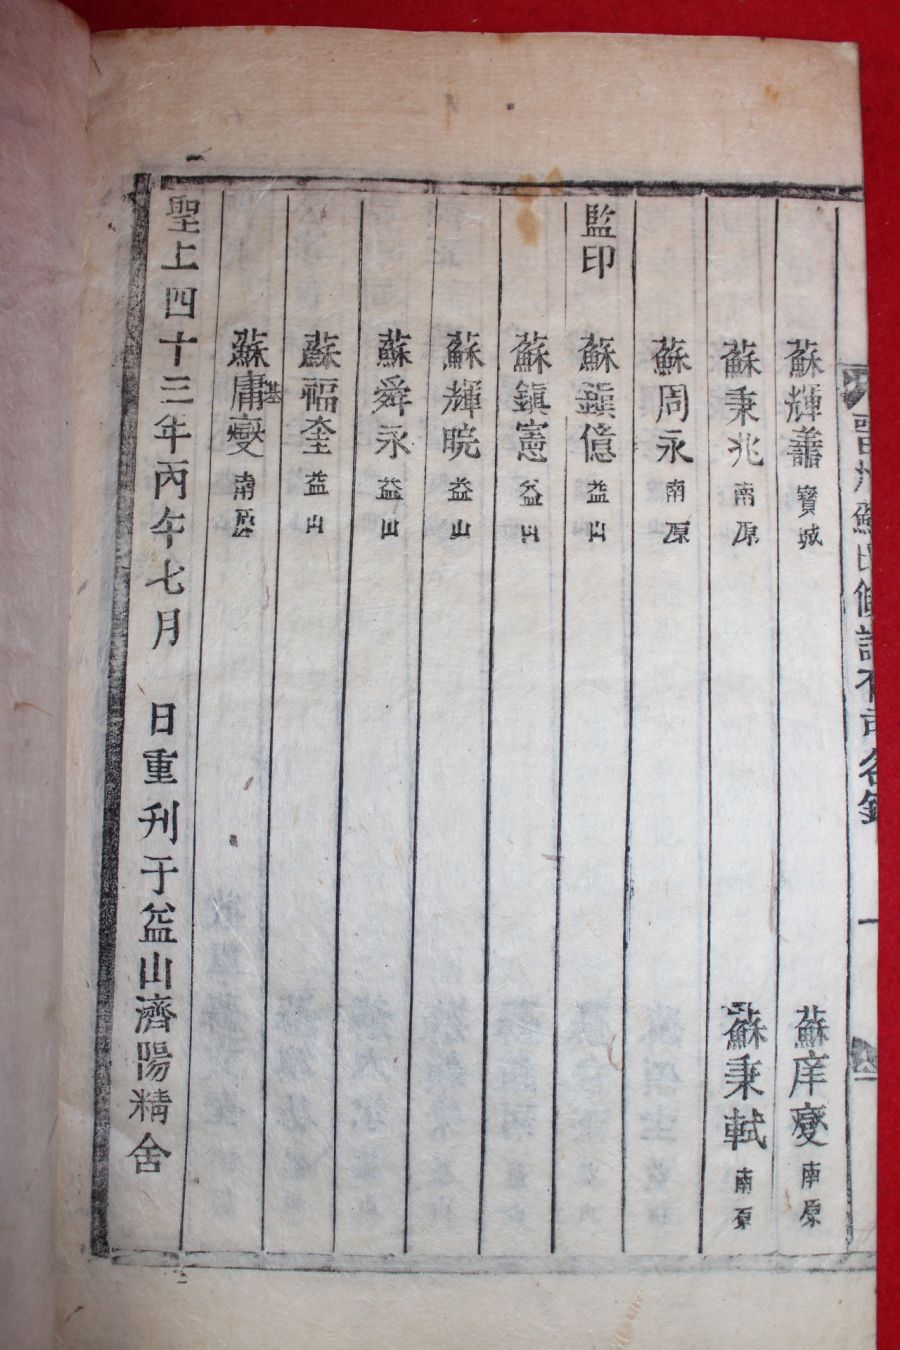 蘇輝善 寶城 蘇庠燮 南原
蘇秉兆 南原 蘇秉軾 南原
蘇周永 南原
監印 蘇鎭億 益山
蘇鎭憲 益山
蘇輝晥 益山
蘇舜永 益山
蘇福奎 益山
蘇庸燮 南原
聖上四十三年丙午七月 日重刊于益山濟陽精舍